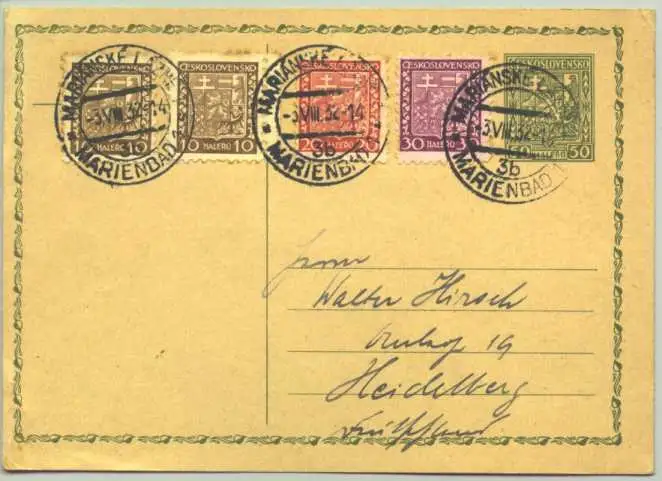 MARIÁNSKÉ LÁZNĚ
-3.VIII.32-14
MARIENBAD 1
ČESKOSLOVENSKO
10 HALÉŘŮ 10
MARIÁNSKÉ
-3.VIII.32-14
3b
MARIENBAD
ČESKOSLOVENSKO
20 HALÉŘŮ 20
ČESKOSLOVENSKO
30 HALÉŘŮ 30
MARIÁNSKÉ
-3.VIII.32-1
3b
MARIENBAD 1
ČESKOSLOVENSKO
50 HALÉŘŮ 50
Herrn
Walter Hirsch
19
Heidelberg